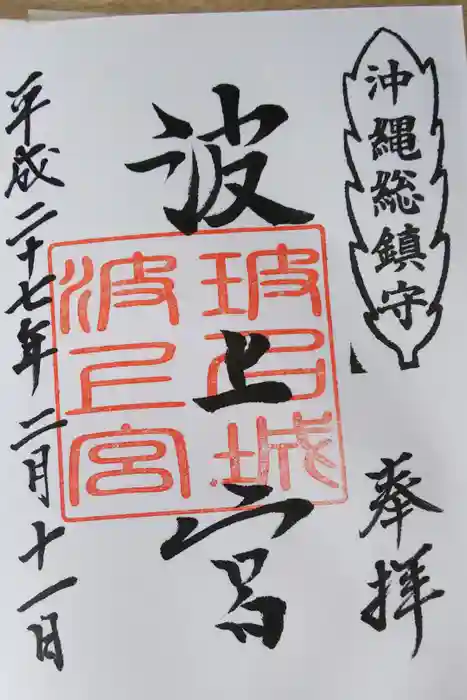 沖縄総鎮守
奉拝
波上宮
波上宮
平成二十七年二月十一日